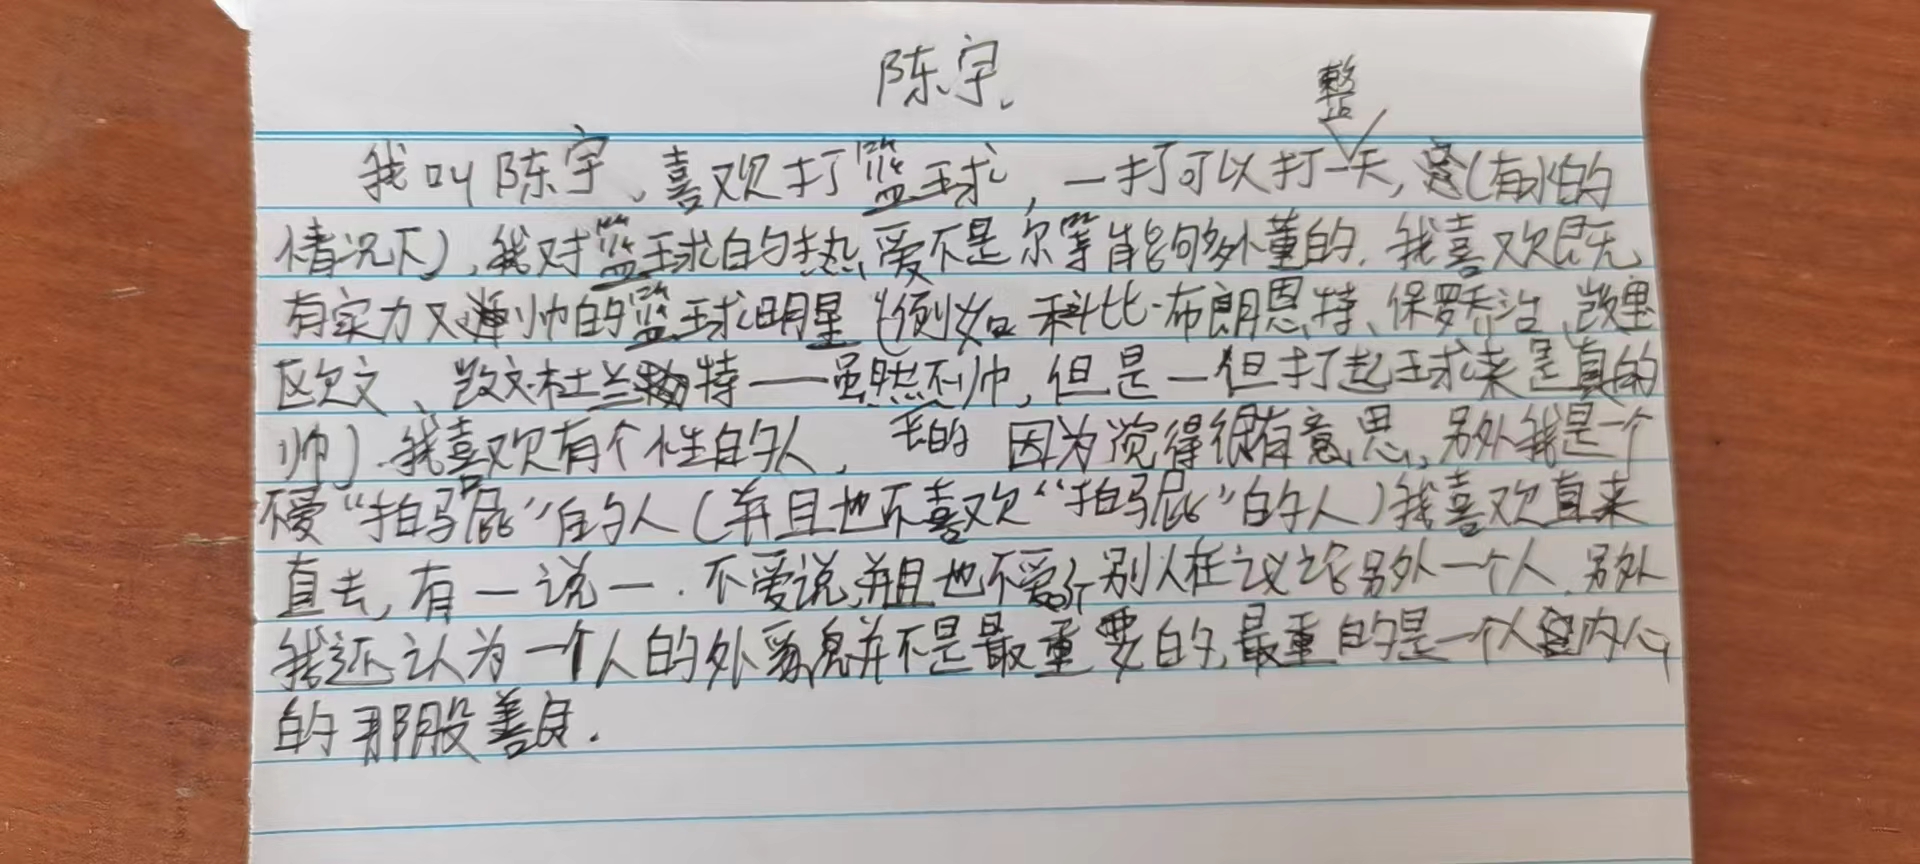 陈宇
整
我叫陈宇、喜欢打篮球，一打可以打一天，(有水的
情况下)，我对篮球的热爱不是尔等能够多懂的．我喜欢既
有实力又帅的篮球明星(例如科比·布朗恩特、保罗乔治、凯里
区欠文、凯文·杜兰特——虽然不帅，但是一但打起球来是真的
帅)．我喜欢有个性的人，因为觉得很有意思，另外我是一个
不爱“拍马屁”的人(并且也不喜欢“拍马屁”的人)我喜欢直来
直去，有一说一．不爱说，并且也不爱听别人在议论另外一个人．另外
我还认为一个人的外并不是最重要的，最重的是一个人内心
的那股善良．